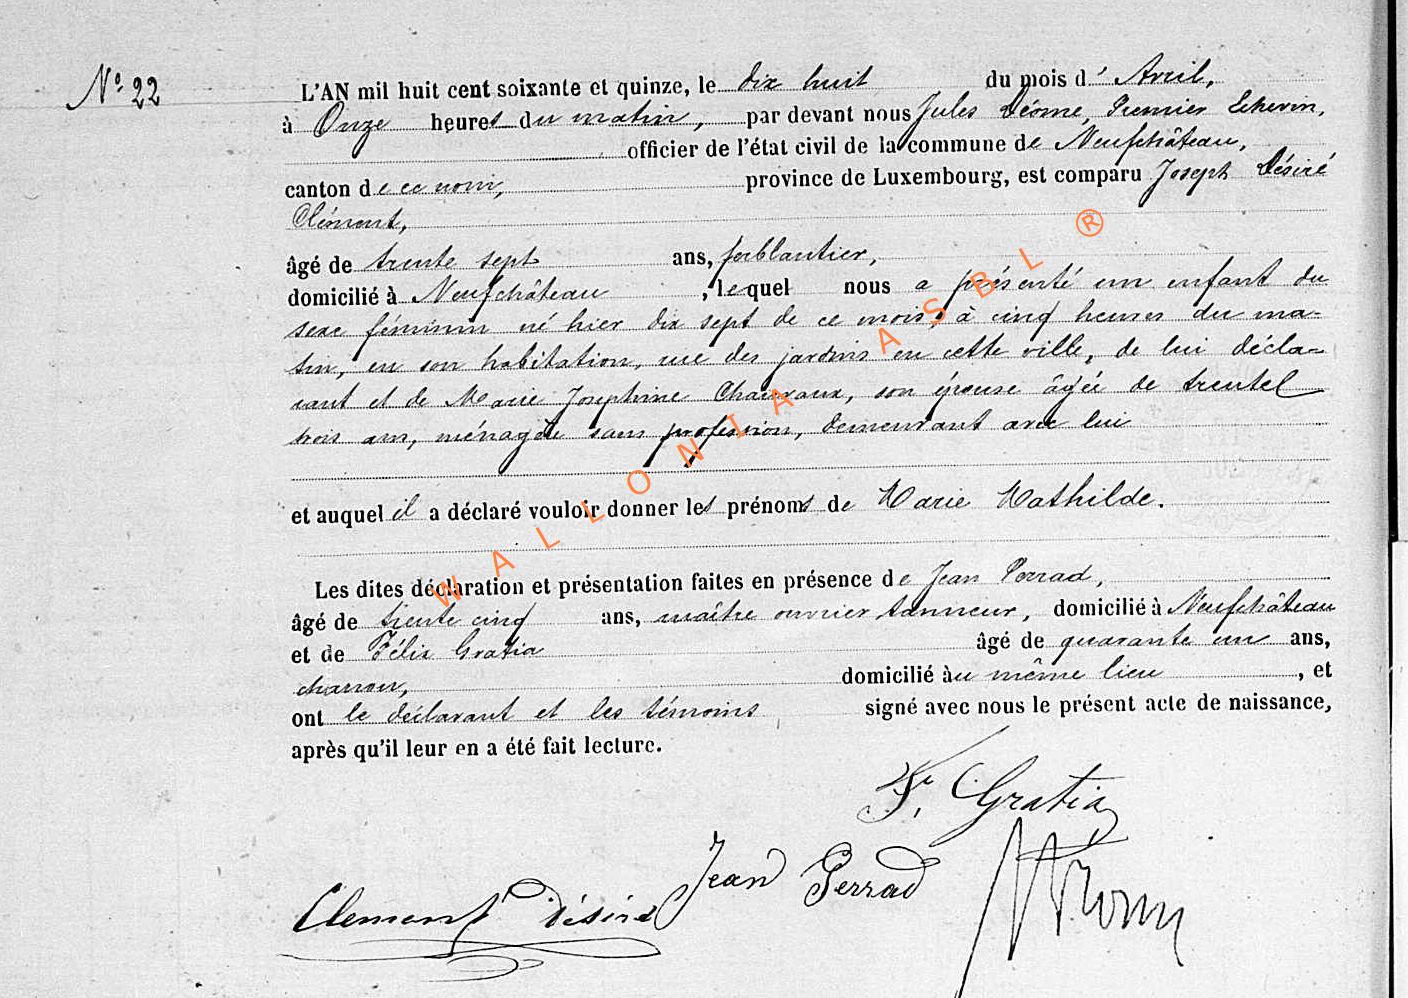 N° 22
L'AN mil huit cent soixante et quinze, le dix huit du mois d' Avril,
à Onze heures du matin, par devant nous Jules Premier Echevin,
officier de l'état civil de la commune de Neufchâteau,
canton de ce nom, province de Luxembourg, est comparu Joseph Désiré
Clément,
âgé de trente sept ans, ferblantier,
domicilié à Neufchâteau, lequel nous a présenté un enfant du
sexe féminin né hier dix sept de ce mois, à cinq heures du ma-
tin, en son habitation, rue des jardins en cette ville, de lui décla-
rant et de Marie Josephine son épouse âgée de trente
trois ans, ménagère sans profession, demeurant avec lui
et auquel il a déclaré vouloir donner les prénoms de Marie Mathilde.
Les dites déclaration et présentation faites en présence de Jean Perrad,
âgé de trente cinq ans, maître ouvrier tanneur, domicilié à Neufchâteau
et de Félix Gratia âgé de quarante un ans,
charron, domicilié au même lieu, et
ont le déclarant et les témoins signé avec nous le présent acte de naissance,
après qu'il leur en a été fait lecture.
F. Gratia
Jean Perrad
Clement Désiré
WALLONIA ASBL ®